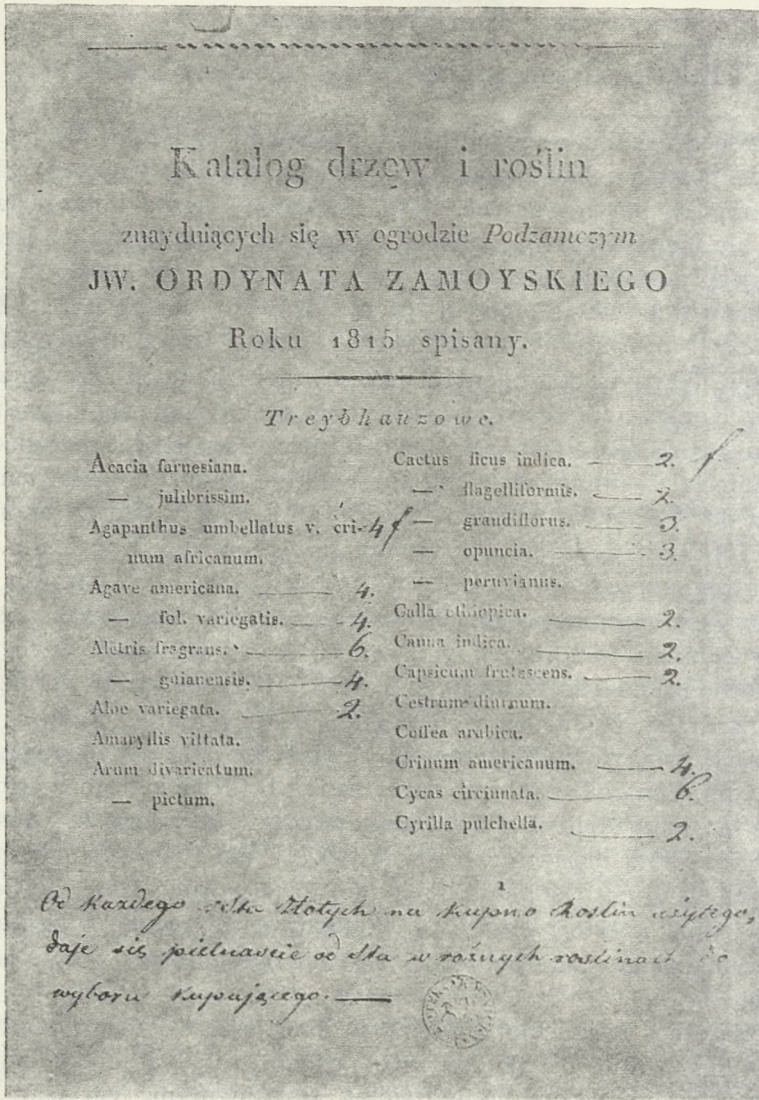 Katalog drzew i roślin
znayduiących się w ogrodzie Podzamczym
JW. ORDYNATA ZAMOYSKIEGO
Roku 1815 spisany.
Treybhauzowe.
Acacia farnesiana.
— julibrissim.
Agapanthus umbellatus v. cri- 4 f
num africanum.
Agave americana. 4.
— fol. variegatis. 4.
Aletris fragrans. 6.
— guianensis. 4.
Aloe variegata. 2.
Amaryllis vittata.
Arum divaricatum.
— pictum.
Cactus ficus indica. 2. f
— flagelliformis. 2.
— grandiflorus. 3.
— opuncia. 3.
— peruvianus.
Calla ethiopica. 2.
Canna indica. 2.
Capsicum frutescens. 2.
Cestrum diurnum.
Coffea arabica.
Crinum americanum. 4.
Cycas circinnata. 6.
Cyrilla pulchella. 2.
Od każdego sta Złotych na kupno Roślin użytego,
daje się pietnaście od sta w rożnych roslinach do
wyboru kupującego.